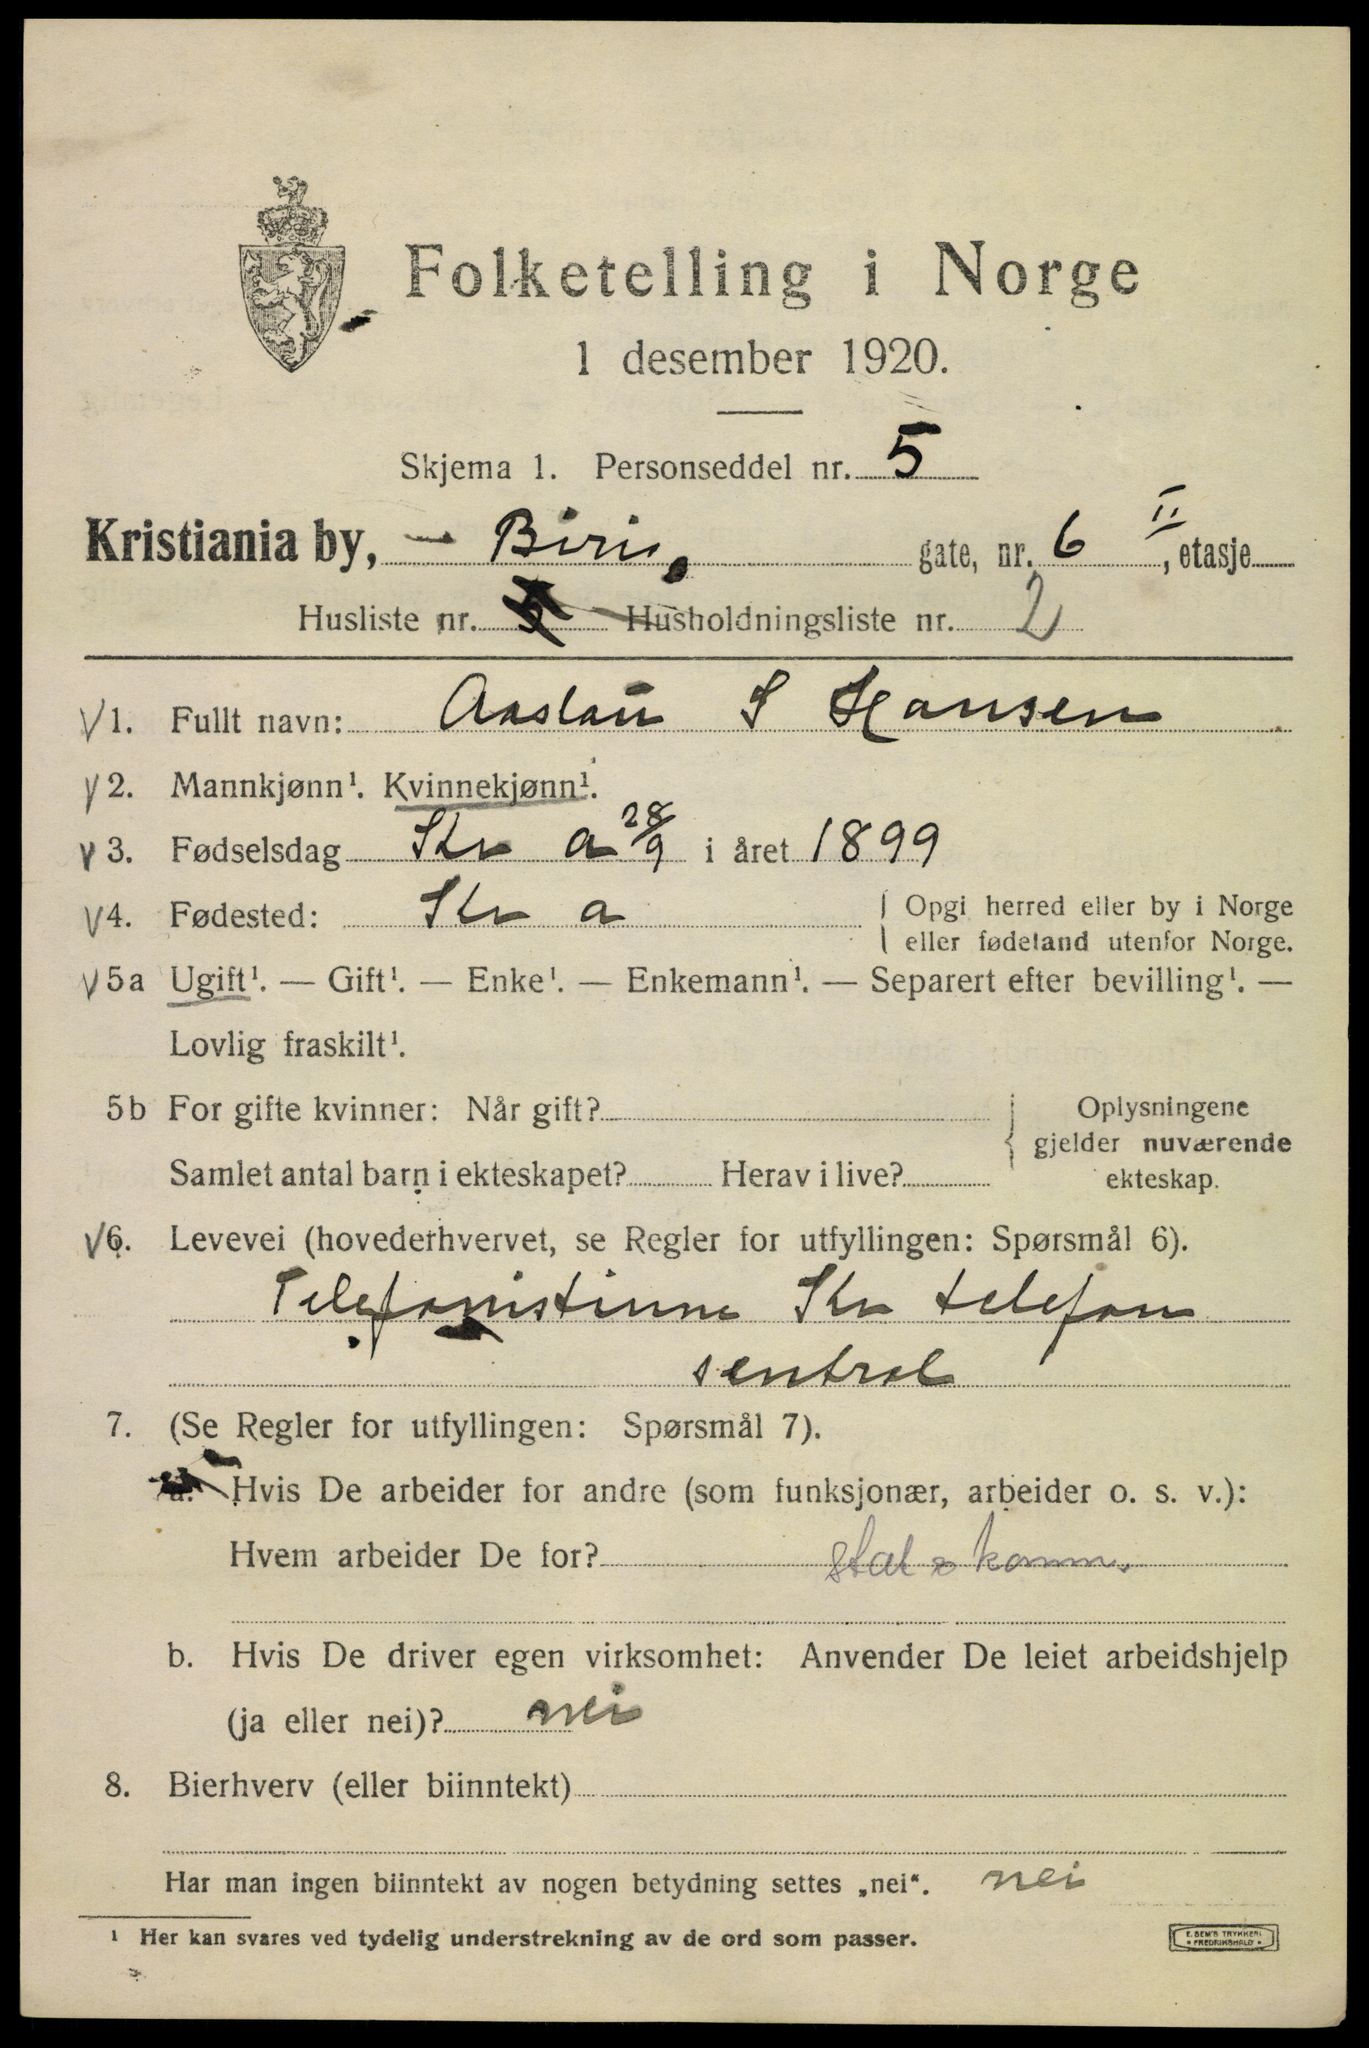 Folketelling i Norge
1 desember 1920.
Skjema 1. Personseddel nr. 5
Kristiania by, Biris gate, nr. 6 II, etasje
Husliste nr. Husholdningsliste nr. 2
1. Fullt navn: Aaslau S Hansen
2. Mannkjønn¹. Kvinnekjønn¹.
3. Fødselsdag Kr a 28/9 i året 1899
4. Fødested: Kr a { Opgi herred eller by i Norge
eller fødeland utenfor Norge.
5a Ugift¹. — Gift¹. — Enke¹. — Enkemann¹. — Separert efter bevilling¹. —
Lovlig fraskilt¹.
5b For gifte kvinner: Når gift? { Oplysningene
gjelder nuværende
Samlet antal barn i ekteskapet? Herav i live? ekteskap.
6. Levevei (hovederhvervet, se Regler for utfyllingen: Spørsmål 6).
Telefonistinne Kr telefon
sentral
7. (Se Regler for utfyllingen: Spørsmål 7).
a. Hvis De arbeider for andre (som funksjonær, arbeider o. s. v.):
Hvem arbeider De for? stat o komm.
b. Hvis De driver egen virksomhet: Anvender De leiet arbeidshjelp
(ja eller nei)? nei
8. Bierhverv (eller biinntekt)
Har man ingen biinntekt av nogen betydning settes „nei“. nei
¹ Her kan svares ved tydelig understrekning av de ord som passer.
E. SEM'S TRYKKERI
FREDRIKSHALD